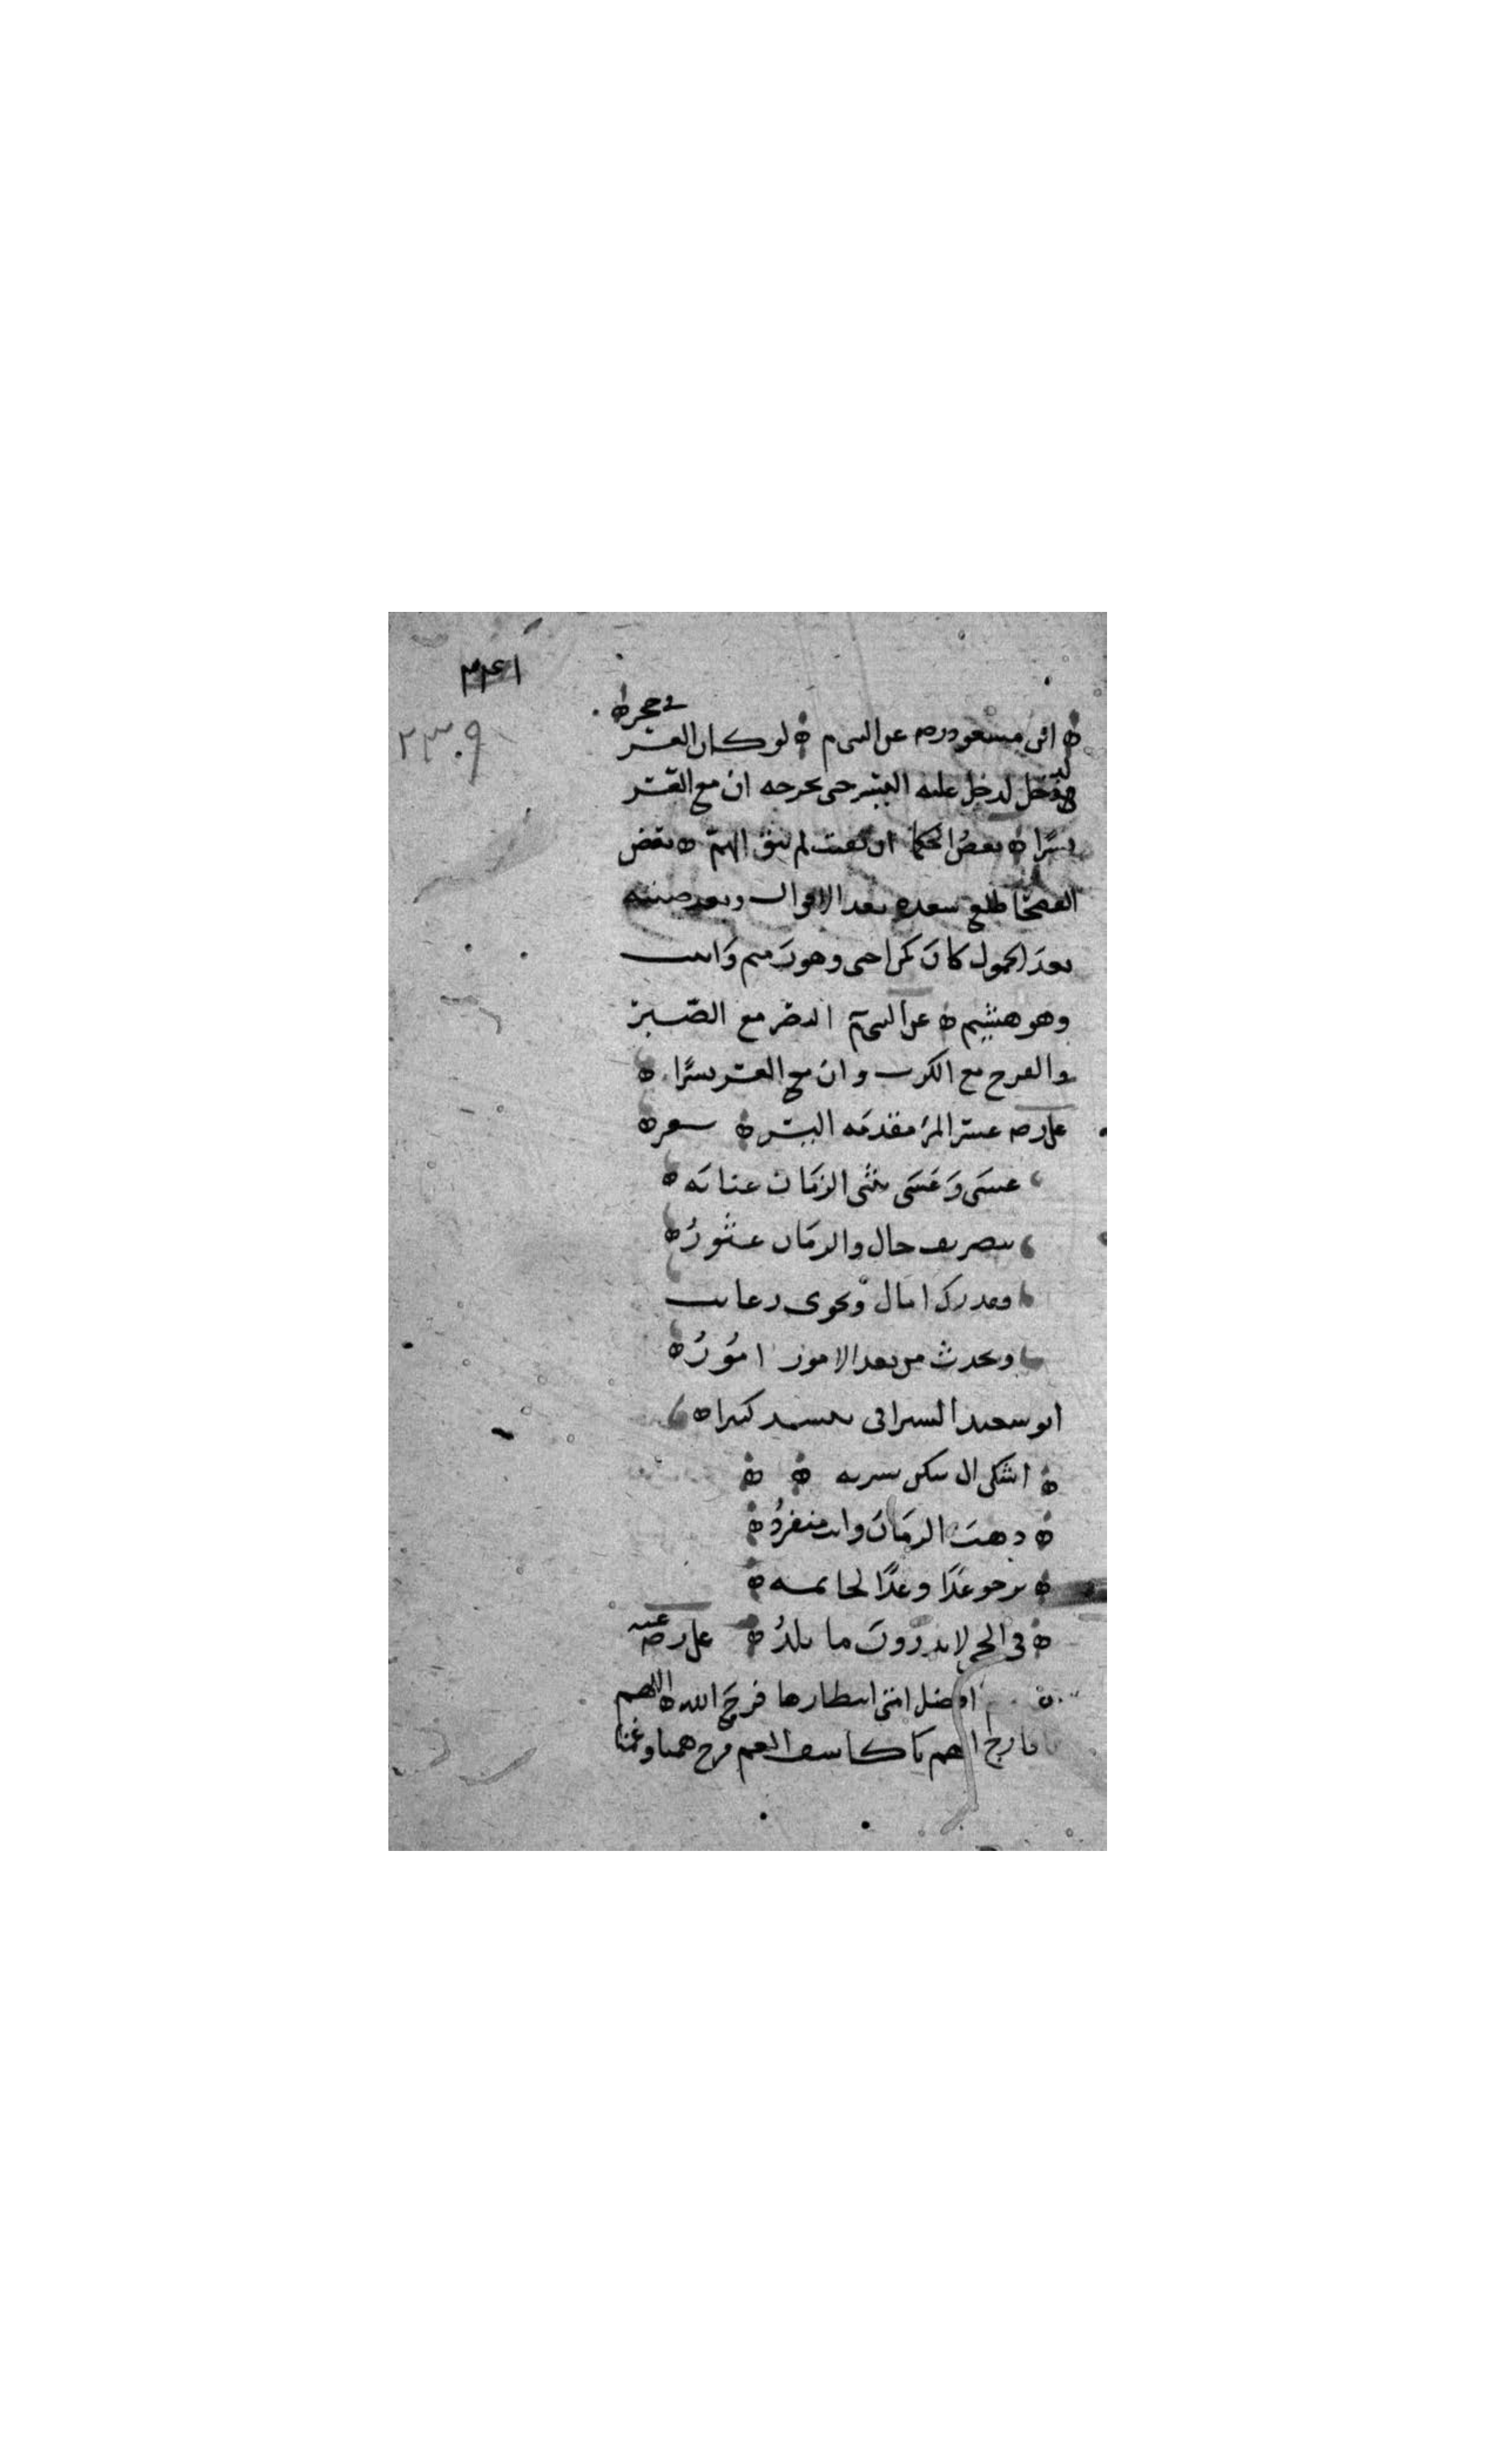 ٢٤١
٢٣٠٩
في حجر
ابن مسعود رضه عن النبي م لو كان العسر
فدخل لدخل عليه اليسر حتى يخرجه ان مع العسر
يسرا بعض الحكما ان تعبت لم يبق الهم بعض
الفصحا طلع سعده بعد الافول وبعد صيته
بعد الخمول كان كمن احيي وهو رميم وانبت
وهو هشيم عن النبي م النصر مع الصبر
والفرج مع الكرب وان مع العسر يسرا
علي رضه عسر المرء مقدمه اليسر شعر
عسى وعسى يثني الزمان عنانه
بتصريف حال والزمان عثور
فتدرك امال وتحوى رغائب
ويحدث من بعد الامور امور
ابو سعيد السيرافي ينشد كثيرا
اسكن الى سكن تسر به
ذهب الزمان وانت منفرد
ترجو غدا وغدا كحاملة
في الحي لا يدرون ما تلد علي رضي عنه
افضل امتي انتظارها فرج الله اللهم
يا فارج الهم يا كاشف الغم فرج همنا وغمنا